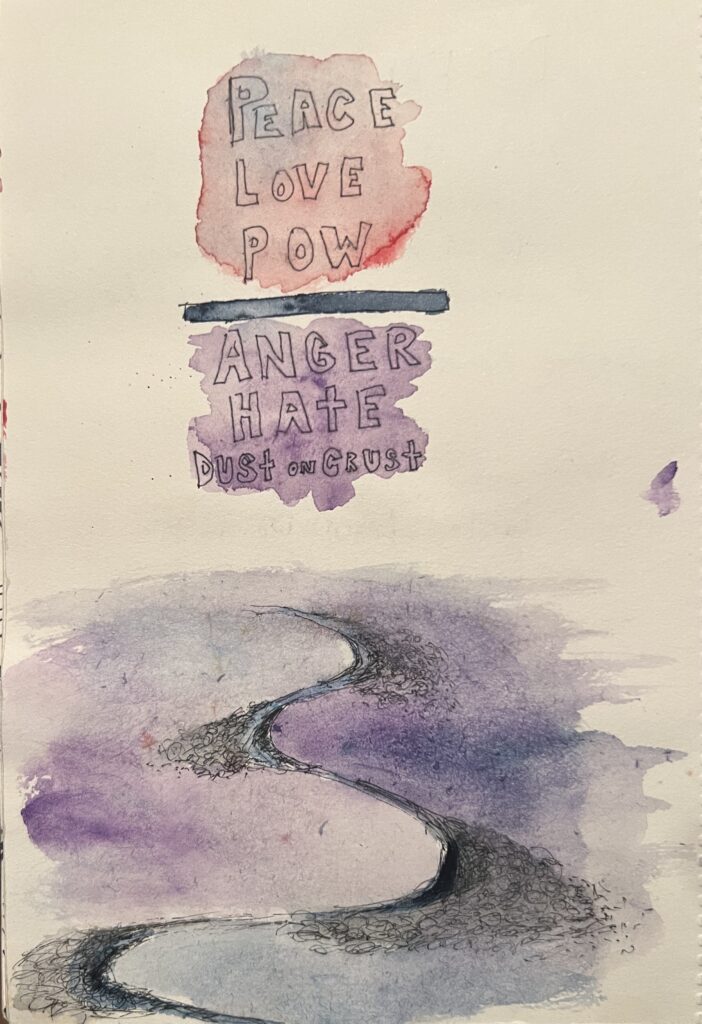 PEACE
LOVE
POW
ANGER
HATE
DUST ON CRUST